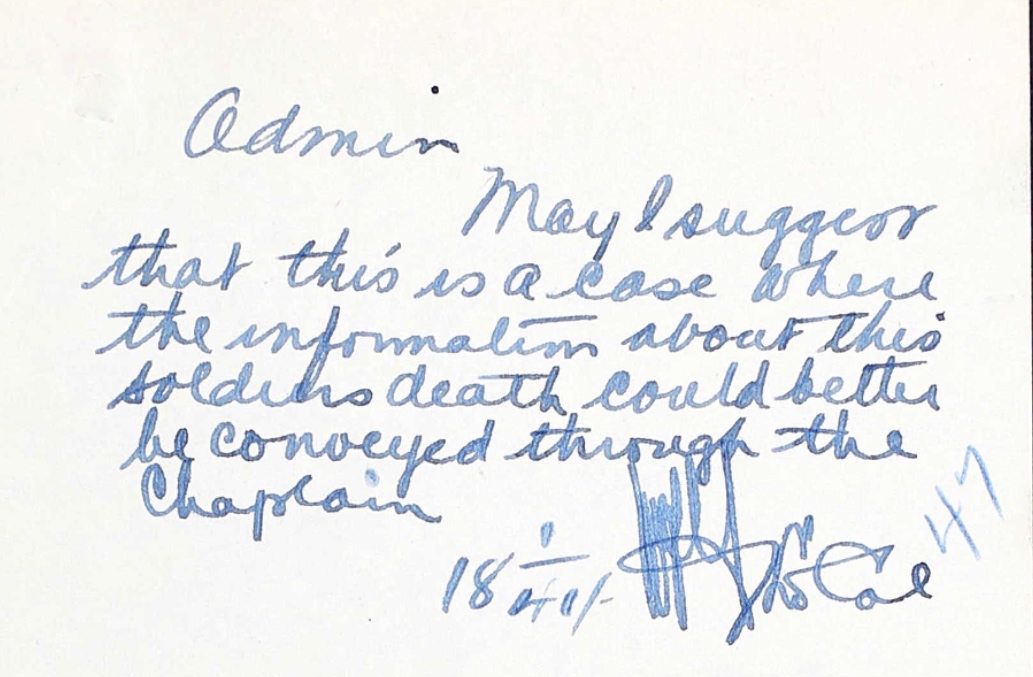 Admin
May I suggest
that this is a case where
the information about this
soldiers death could better
be conveyed through the
Chaplain
47
18 Col